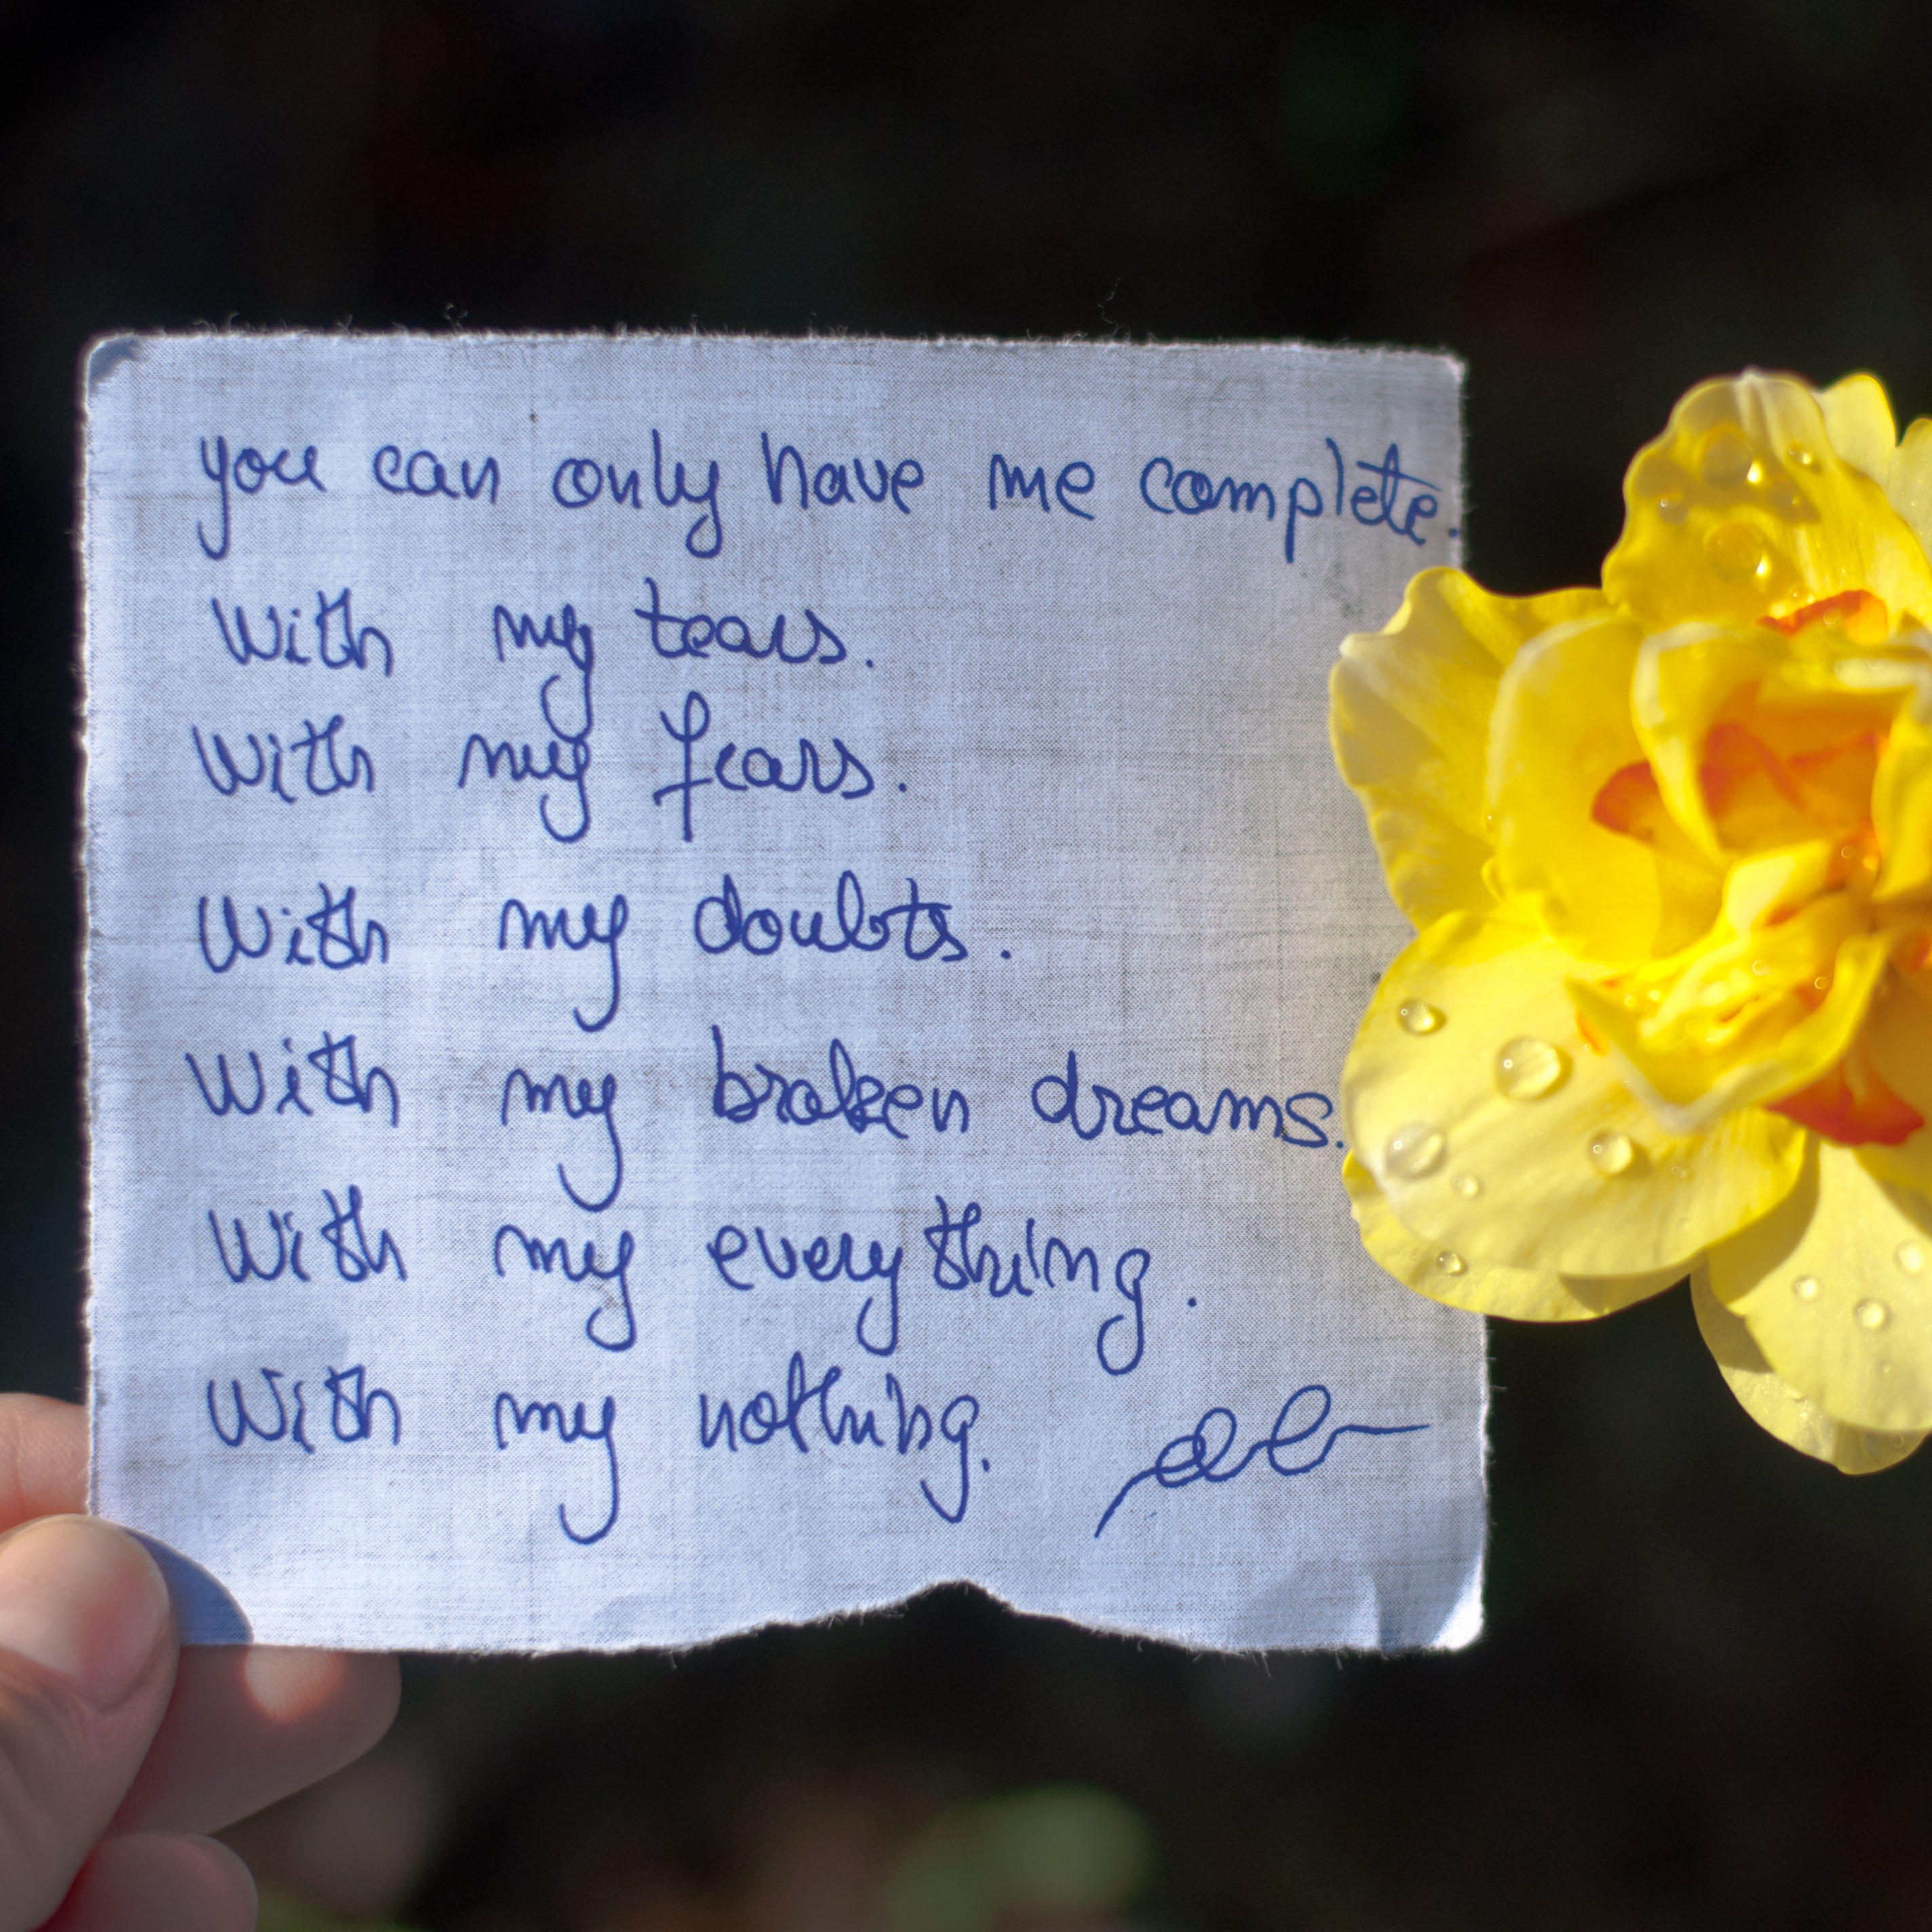 you can only have me complete.
With my tears.
With my fears.
With my doubts.
With my broken dreams.
With my everything.
With my nothing.